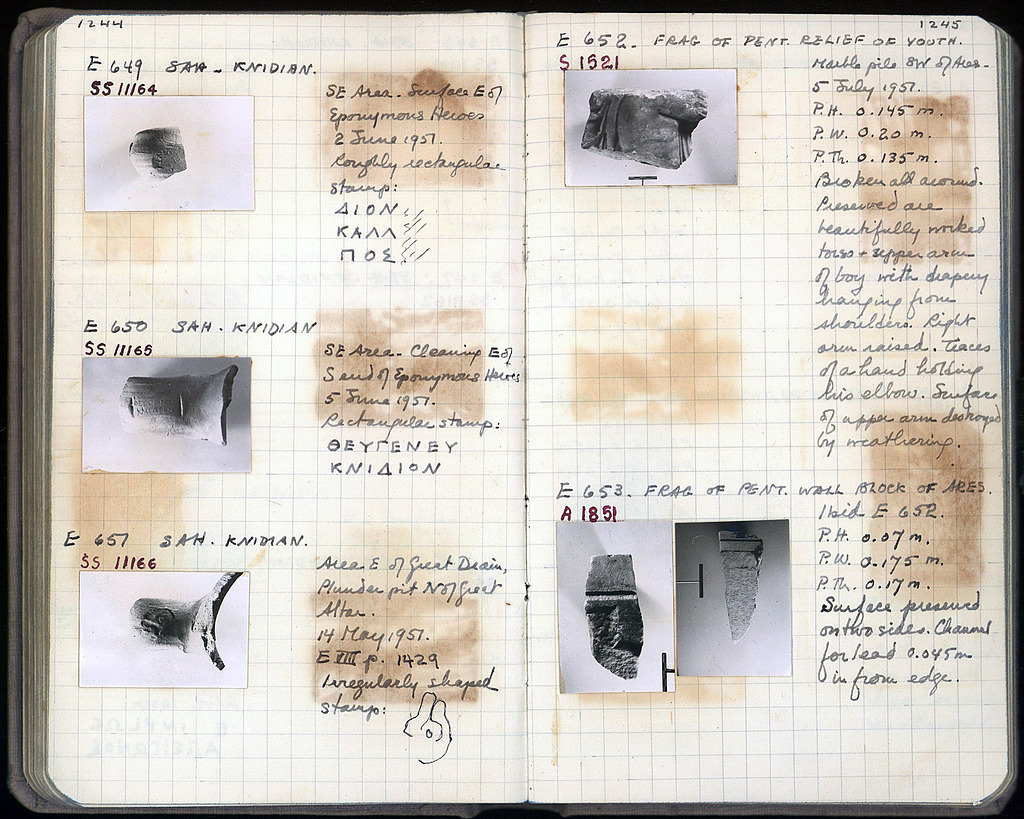 1244
E 649 SAH - KNIDIAN.
SS 11164
SE Area. Surface E of
Eponymous Heroes
2 June 1951.
Roughly rectangular
stamp:
ΔΙΟΝ
ΚΑΛΛ
ΠΟΣ
E 650 SAH. KNIDIAN
SS 11165
SE Area. Cleaning E of
S end of Eponymous Heroes
5 June 1951.
Rectangular stamp:
ΘΕΥΓΕΝΕΥ
ΚΝΙΔΙΟΝ
E 651 SAH. KNIDIAN.
SS 11166
Area E of Great Drain,
Plunder pit N of Great
Altar.
14 May 1951.
E VIII p. 1429
Irregularly shaped
stamp:
1245
E 652. FRAG OF PENT. RELIEF OF YOUTH.
S 1521
Marble pile SW of Ares.
5 July 1951.
P.H. 0.145 m.
P.W. 0.20 m.
P.Th. 0.135 m.
Broken all around.
Preserved are
beautifully worked
torso + upper arm
of boy with drapery
hanging from
shoulders. Right
arm raised. Traces
of a hand holding
his elbow. Surface
of upper arm destroyed
by weathering.
E 653. FRAG OF PENT. WALL BLOCK OF ARES.
A 1851
Ibid E 652.
P.H. 0.07 m.
P.W. 0.175 m.
P.Th. 0.17 m.
Surface preserved
on two sides. Channel
for lead 0.045 m
in from edge.